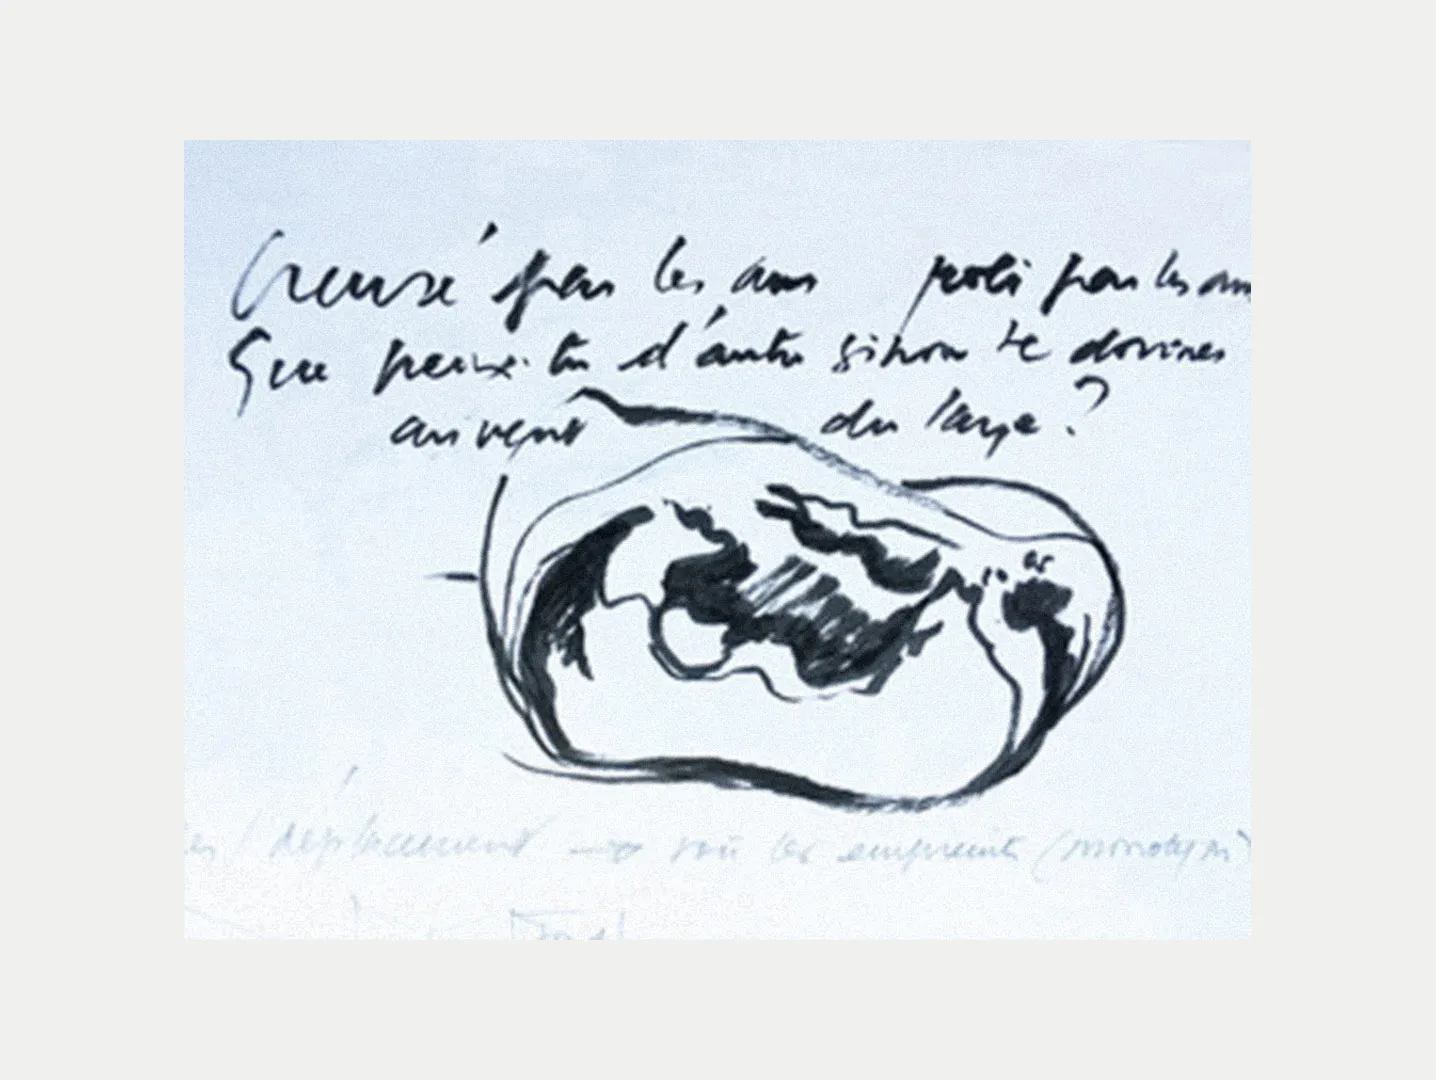 Creusé par les ans poli par les an
Que peux-tu d'autre sinon te
au vent du large ?
l'déplacement → voir les empreintes (monotypes)